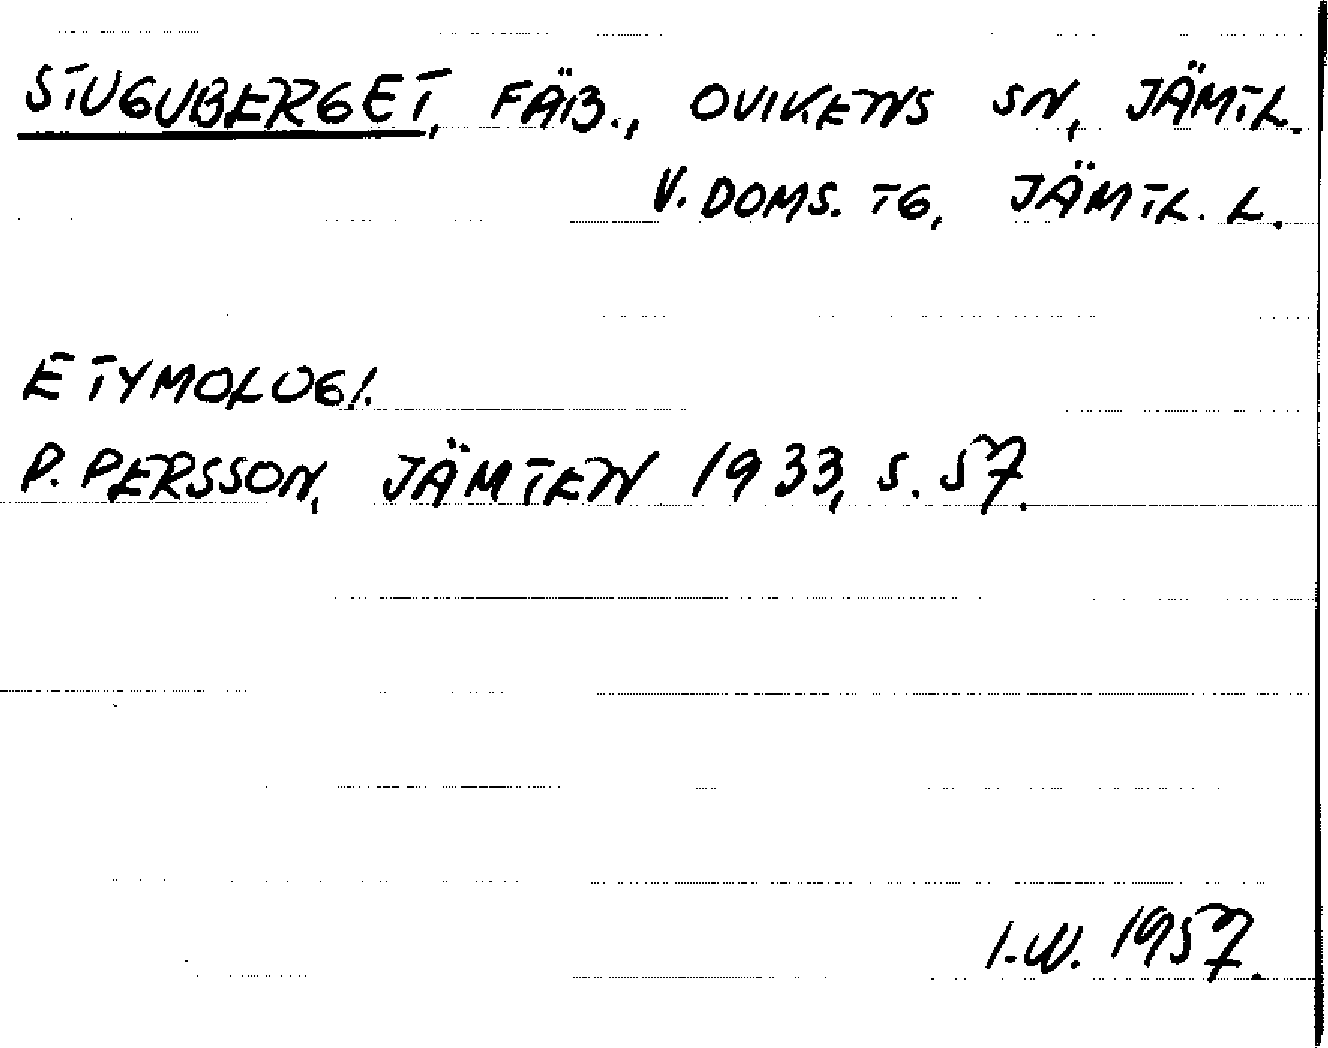 STUGUBERGET, FÄB., OVIKENS SN, JÄMTL.
V. DOMS. TG, JÄMTL. L.
ETYMOLOGI.
P. PERSSON, JÄMTEN 1933, S. 57.
I.W. 1957.